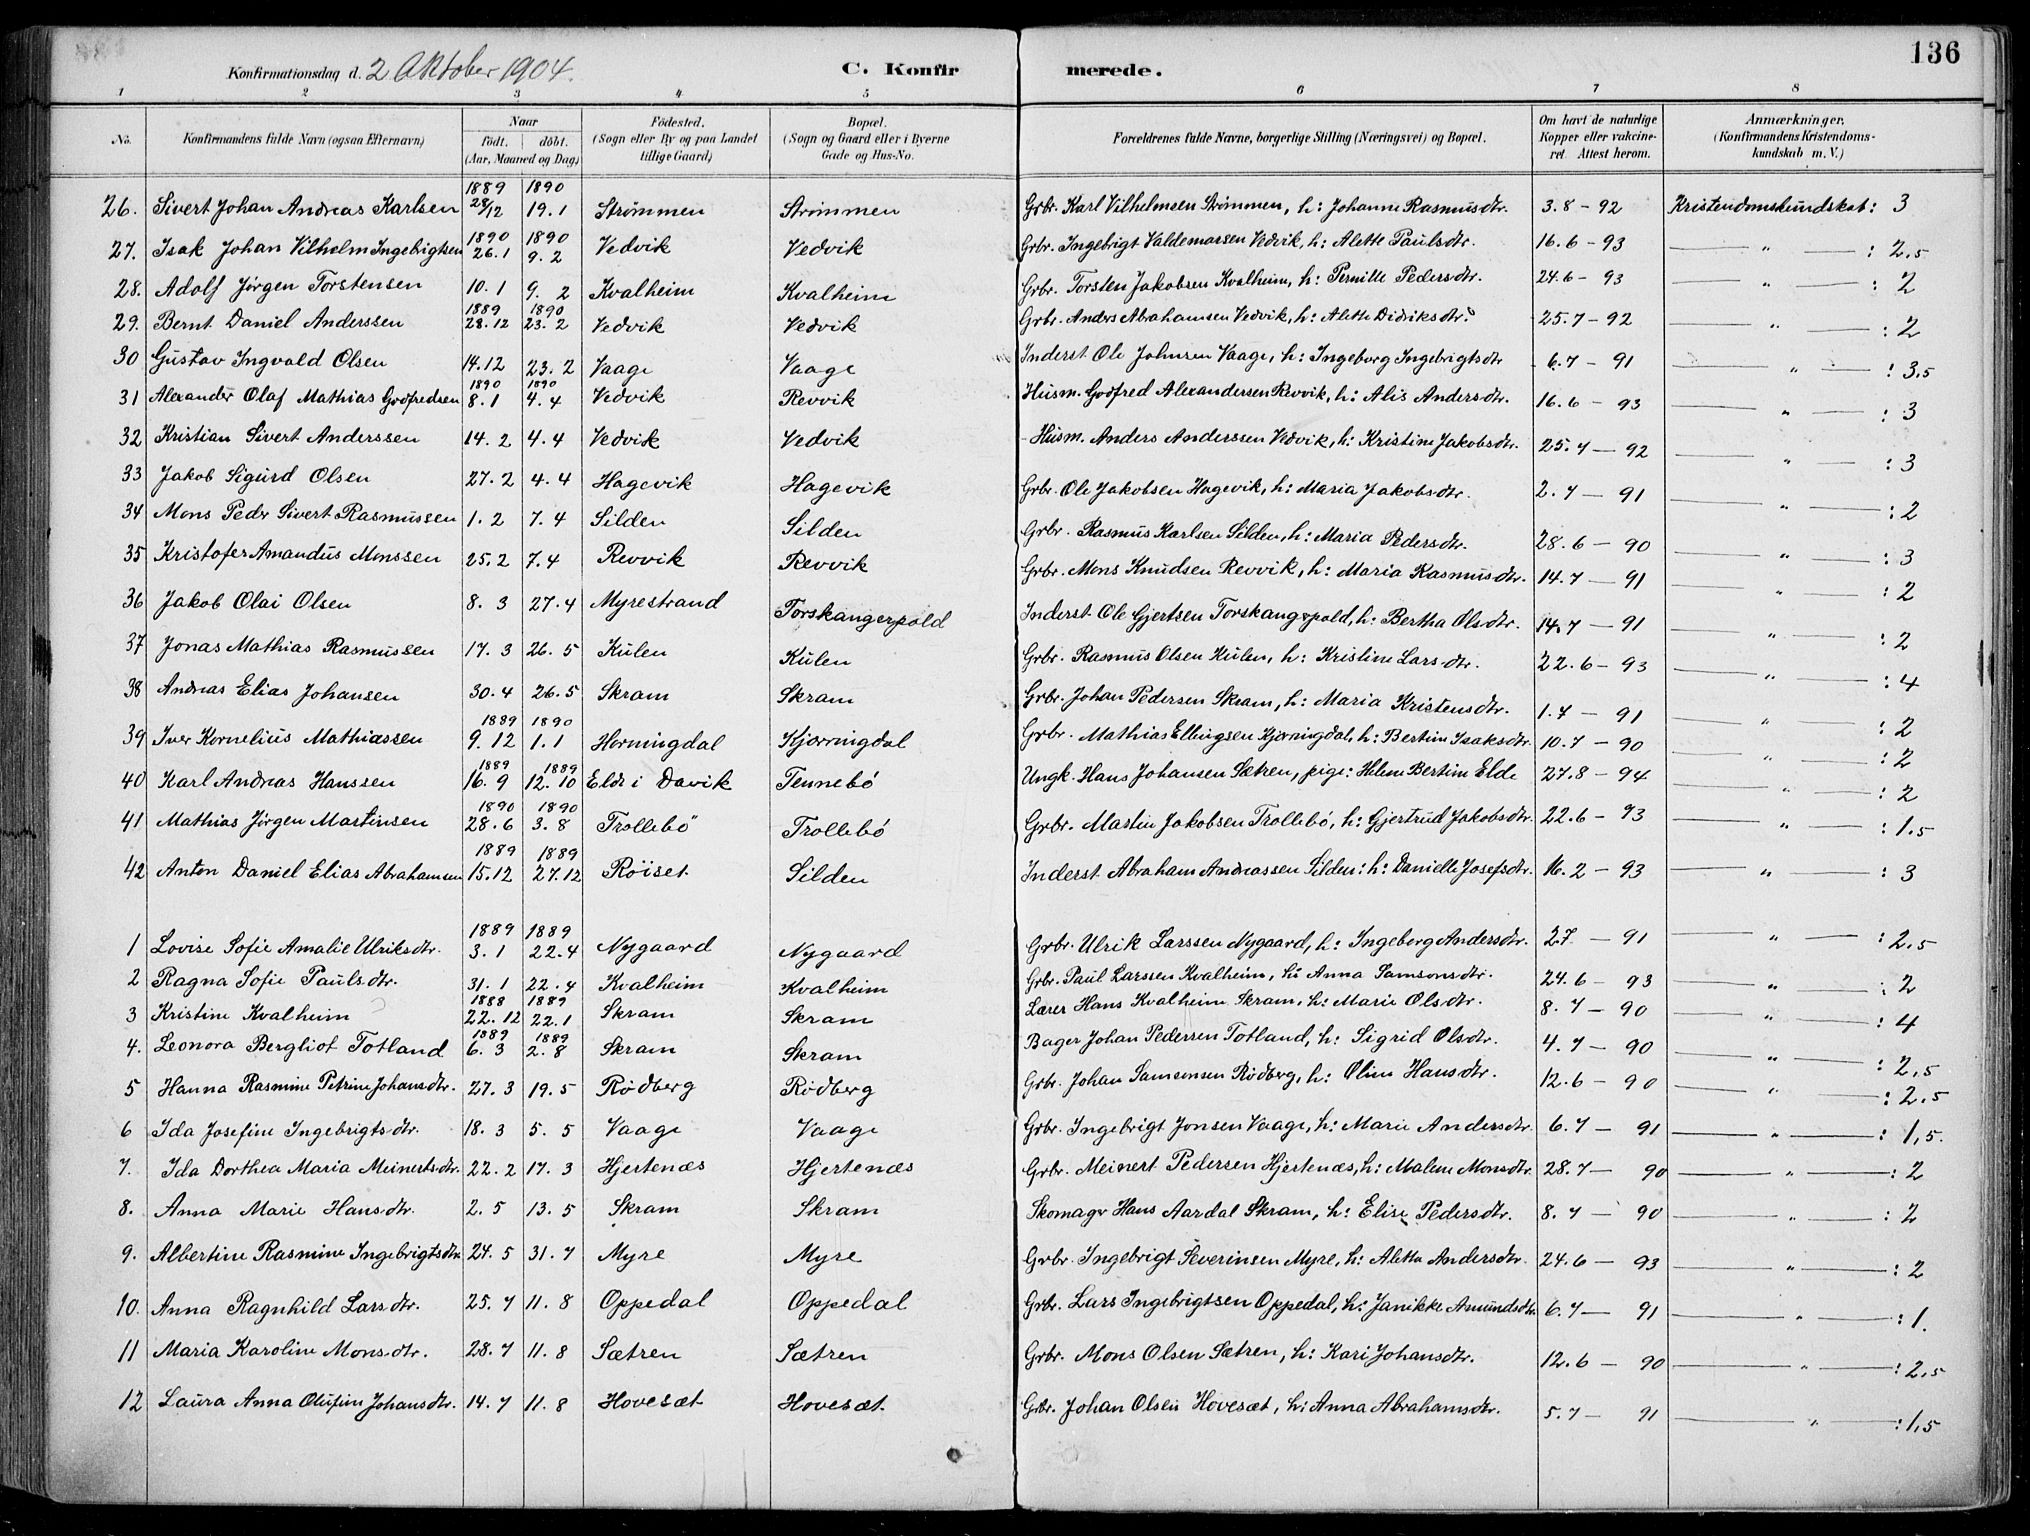 136
Konfirmationsdag d. 2 Oktober 1904. C. Konfirmerede.
1 2 3 4 5 6 7 8
No. Konfirmandens fulde Navn (ogsaa Efternavn) Naar født. døbt. (Aar, Maaned og Dag) Fødested. (Sogn eller By og paa Landet tillige Gaard) Bopæl. (Sogn og Gaard eller i Byerne Gade og Hus-No. Forældrenes fulde Navne, borgerlige Stilling (Næringsvei) og Bopæl. Om havt de naturlige Kopper eller vakcineret. Attest herom. Anmærkninger. (Konfirmandens Kristendomskundskab m. V.)
1889 1890
26. Sivert Johan Andreas Karlsen 28/12 19.1 Strømmen Strømmen Grbr. Karl Vilhelmsen Strømmen, h: Johanne Rasmusdtr. 3.8 - 92 Kristendomskundskab: 3
1890 1890
27. Isak Johan Vilhelm Ingebrigtsen 26.1 9.2 Vedvik Vedvik Grbr. Ingebrigt Valdemarsen Vedvik, h: Alette Paulsdtr. 16.6 - 93 — " — : 2,5
28. Adolf Jørgen Torstensen 10.1 9.2 Kvalheim Kvalheim Grbr. Torsten Jakobsen Kvalheim, h: Pernille Pedersdtr. 24.6 - 93 — " — : 2
1889 1890
29. Bernt Daniel Anderssen 28.12 23.2 Vedvik Vedvik Grbr. Anders Abrahamsen Vedvik, h: Alette Didriksdtr. 25.7 - 92 — " — : 2
30 Gustav Ingvald Olsen 14.12 23.2 Vaage Vaage Inderst Ole Johnsen Vaage, h: Ingeborg Ingebrigtsdtr 6.7 - 91 — " — : 3,5
1890 1890
31 Alexander Olaf Mathias Godfredsen 8.1 4.4 Vedvik Revvik Husm. Godfred Alexandersen Revvik, h: Alis Andersdtr. 16.6 - 93 — " — : 3
32 Kristian Sivert Anderssen 14.2 4.4 Vedvik Vedvik Husm. Anders Anderssen Vedvik, h: Kristine Jakobsdtr. 25.7 - 92 — " — : 3
33 Jakob Sigurd Olsen 27.2 4.4 Hagevik Hagevik Grbr. Ole Jakobsen Hagevik, h: Maria Jakobsdtr. 2.7 - 91 — " — : 2
34 Mons Peder Sivert Rasmussen 1.2 7.4 Silden Silden Grbr. Rasmus Karlsen Silden, h: Maria Pedersdtr. 28.6 - 90 — " — : 3
35 Kristofer Amandus Monssen 25.2 7.4 Revvik Revvik Grbr. Mons Knudsen Revvik, h: Maria Rasmusdtr. 14.7 - 91 — " — : 2
36 Jakob Olai Olsen 8.3 27.4 Myrestrand Torskangerpold Inderst Ole Gjertsen Torskangrpold, h: Bertha Olsdtr. 14.7 - 91 — " — : 2
37 Jonas Mathias Rasmussen 17.3 26.5 Kulen Kulen Grbr. Rasmus Olsen Kulen, h: Kristine Larsdtr. 22.6 - 93 — " — : 4
38 Andreas Elias Johansen 30.4 26.5 Skram Skram Grbr. Johan Pedersen Skram, h: Maria Kristensdtr. 1.7 - 91 — " — : 2
1889 1890
39 Iver Kornelius Mathiassen 9.12 1.1 Horningdal Kjørringdal Grbr. Mathias Ellingsen Kjørningdal, h: Bertine Isaksdtr. 10.7 - 90 — " — : 2
1889 1889
40 Karl Andreas Hanssen 16.9 12.10 Elde i Davik Tennebö Ungk. Hans Johansen Sætren, pige: Helene Bertine Elde 27.8 - 94 — " — : 2
1890 1890
41 Mathias Jørgen Martinsen 28.6 3.8 Trollebö Trollebö Grbr. Martin Jakobsen Trollebö, h: Gjertrud Jakobsdtr. 22.6 - 93 — " — : 1.5
1889 1889
42 Anton Daniel Elias Abrahamsen 15.12 27.12 Röiset Silden Inderst Abraham Andreassen Silden: h: Danielle Josefsdtr. 16.2 - 93 — " — : 3
1889 1889
1 Lovise Sofie Amalie Ulriksdtr. 3.1 22.4 Nygaard Nygaard Grbr. Ulrik Larssen Nygaard, h: Ingeborg Andersdtr. 2.7 - 91 — " — : 2,5
2 Ragna Sofie Paulsdtr. 31.1 22.4 Kvalheim Kvalheim Grbr. Paul Larssen Kvalheim, h: Anna Samsonsdtr. 24.6 - 93 — " — : 2
1888 1889
3 Kristine Kvalheim 22.12 22.1 Skram Skram Lærer Hans Kvalheim Skram, h: Marie Olsdtr. 8.7 - 90 — " — : 4
1889 1889
4. Leonora Bergliot Totland 6.3 2.8 Skram Skram Bager Johan Pedersen Totland, h: Sigrid Olsdtr. 4.7 - 90 — " — : 2,5
5 Hanna Rasmine Petrine Johansdtr. 27.3 19.5 Rödberg Rödberg Grbr. Johan Samsonsen Rödberg, h: Oline Hansdtr. 12.6 - 90 — " — : 2.5
6 Ida Josefine Ingebrigtsdtr. 18.3 5.5 Vaage Vaage Grbr. Ingebrigt Jonsen Vaage, h: Marie Andersdtr. 6.7 - 91 — " — : 1,5.
7. Ida Dorthea Maria Meinertsdtr. 22.2 17.3 Hjertenæs Hjertenæs Grbr. Meinert Pedersen Hjertenæs, h: Malene Monsdtr. 28.7 - 90 — " — : 2
8. Anna Marie Hansdtr. 2.5 13.5 Skram Skram Skomagr Hans Aardal Skram, h: Elise Pedersdtr. 8.7 - 90 — " — : 2
9. Albertine Rasmine Ingebrigtsdtr. 24.5 31.7 Myre Myre Grbr. Ingebrigt Severinsen Myre, h: Aletta Andersdtr. 24.6 - 93 — " — : 2
10. Anna Ragnhild Larsdtr. 25.7 11.8 Oppedal Oppedal Grbr. Lars Ingebrigtsen Oppedal, h: Janikke Amundsdtr. 6.7 - 91 — " — : 1.
11 Maria Karoline Monsdtr. 28.7 11.8 Sætren Sætren Grbr. Mons Olsen Sætren, h: Kari Johansdtr. 12.6 - 90 — " — : 2,5
12 Laura Anna Olufine Johansdtr. 14.7 11.8 Hovesæt Hovesæt. Grbr. Johan Olsen Hovesæt, h: Anna Abrahamsdtr. 5.7 - 91 — " — : 1,5